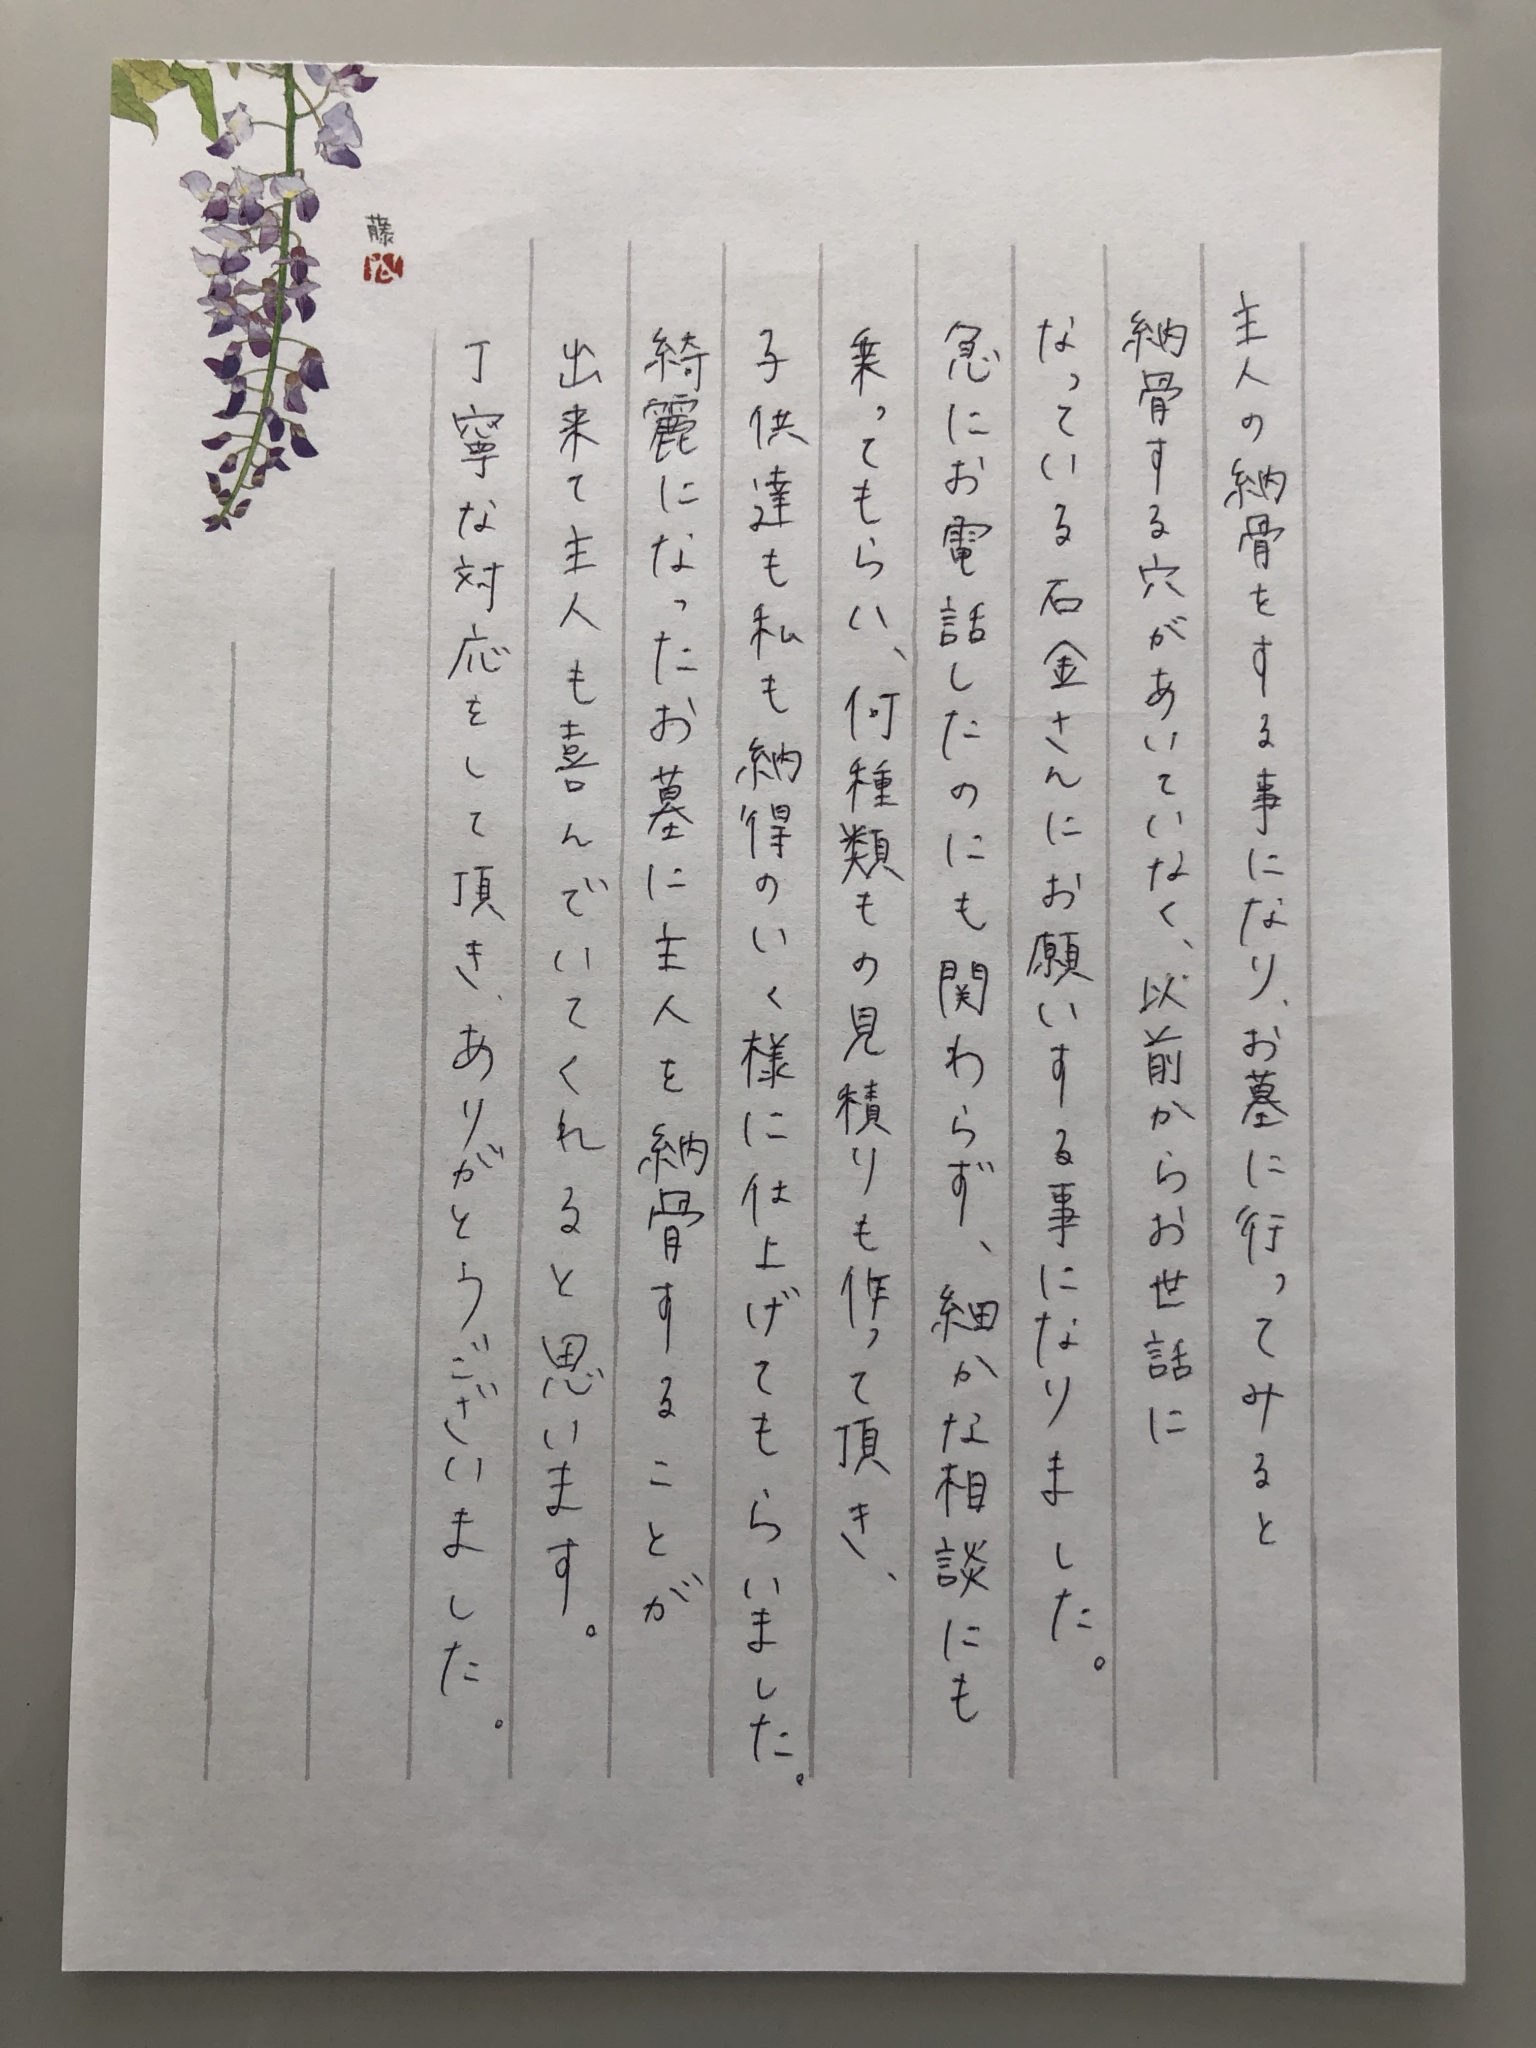 主人の納骨をする事になり、お墓に行ってみると
納骨する穴があいていなく、以前からお世話に
なっている石金さんにお願いする事になりました。
急にお電話したのにも関わらず、細かな相談にも
乗ってもらい、何種類もの見積りも作って頂き、
子供達も私も納得のいく様に仕上げてもらいました。
綺麗になったお墓に主人を納骨することが
出来て主人も喜んでいてくれると思います。
丁寧な対応をして頂き、ありがとうございました。
藤